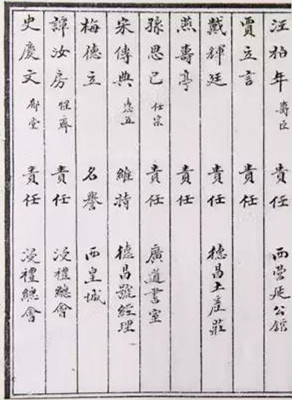 汪柏年 壽臣 責任 西營延公館
賈立言 責任
戴輝廷 責任 德昌土產莊
燕壽亭 責任
孫思已 仕宗 責任 廣道書室
宋傳典 維持 德昌號經理
梅德立 名譽 西皇城
譚汝房 責任 浸禮總會
史慶文 郁堂 責任 浸禮總會